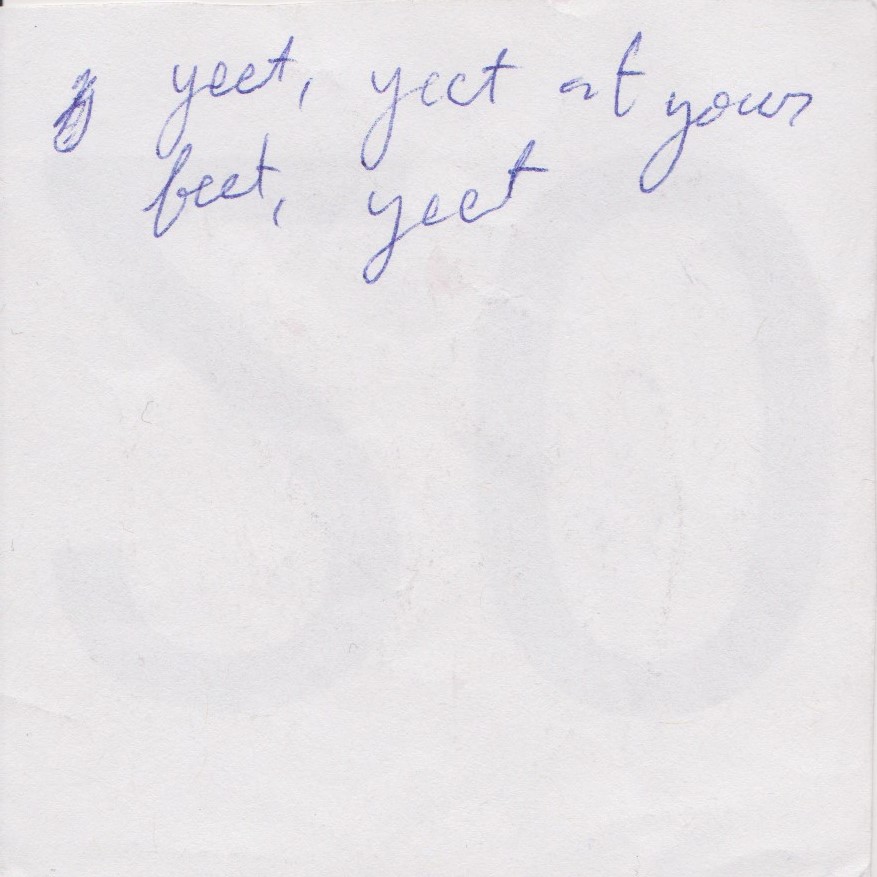 yeet, yeet at your
feet, yeet